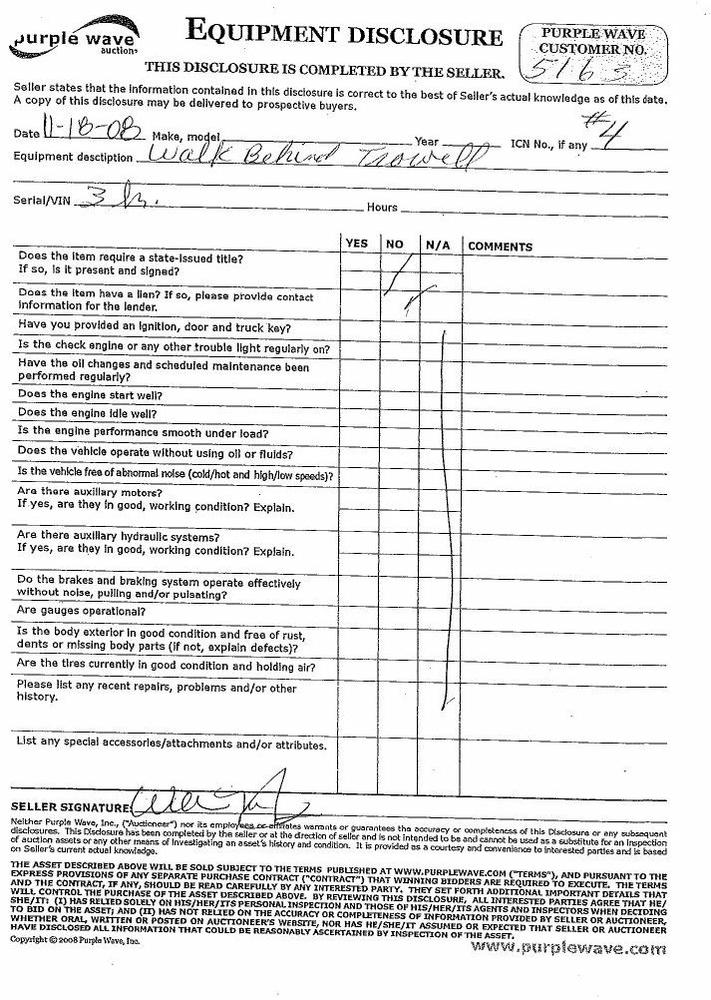 purple wave auction
EQUIPMENT DISCLOSURE
PURPLE WAVE
CUSTOMER NO.
5163
THIS DISCLOSURE IS COMPLETED BY THE SELLER.
Seller states that the information contained in this disclosure is correct to the best of Seller's actual knowledge as of this date.
A copy of this disclosure may be delivered to prospective buyers.
Date 11-18-08 Make, model Year ICN No., if any #4
Equipment description Walk Behind Trowell
Serial/VIN 3 Hours
YES NO N/A COMMENTS
Does the item require a state-issued title?
If so, is it present and signed?
Does the item have a lien? If so, please provide contact
information for the lender.
Have you provided an ignition, door and truck key?
Is the check engine or any other trouble light regularly on?
Have the oil changes and scheduled maintenance been
performed regularly?
Does the engine start well?
Does the engine idle well?
Is the engine performance smooth under load?
Does the vehicle operate without using oil or fluids?
Is the vehicle free of abnormal noise (cold/hot and high/low speeds)?
Are there auxiliary motors?
If yes, are they in good, working condition? Explain.
Are there auxiliary hydraulic systems?
If yes, are they in good, working condition? Explain.
Do the brakes and braking system operate effectively
without noise, pulling and/or pulsating?
Are gauges operational?
Is the body exterior in good condition and free of rust,
dents or missing body parts (if not, explain defects)?
Are the tires currently in good condition and holding air?
Please list any recent repairs, problems and/or other
history.
List any special accessories/attachments and/or attributes.
SELLER SIGNATURE:
Neither Purple Wave, Inc., ("Auctioneer") nor its employees or affiliates warrants or guarantees the accuracy or completeness of this Disclosure or any subsequent
disclosures. This Disclosure has been completed by the seller or at the direction of seller and is not intended to be and cannot be used as a substitute for an inspection
of auction assets or any other means of investigating an asset's history and condition. It is provided as a courtesy and convenience to interested parties and is based
on Seller's current actual knowledge.
THE ASSET DESCRIBED ABOVE WILL BE SOLD SUBJECT TO THE TERMS PUBLISHED AT WWW.PURPLEWAVE.COM ("TERMS"), AND PURSUANT TO THE
EXPRESS PROVISIONS OF ANY SEPARATE PURCHASE CONTRACT ("CONTRACT") THAT WINNING BIDDERS ARE REQUIRED TO EXECUTE. THE TERMS
AND THE CONTRACT, IF ANY, SHOULD BE READ CAREFULLY BY ANY INTERESTED PARTY. THEY SET FORTH ADDITIONAL IMPORTANT DETAILS THAT
WILL CONTROL THE PURCHASE OF THE ASSET DESCRIBED ABOVE. BY REVIEWING THIS DISCLOSURE, ALL INTERESTED PARTIES AGREE THAT HE/
SHE/IT: (I) HAS RELIED SOLELY ON HIS/HER/ITS PERSONAL INSPECTION AND THOSE OF HIS/HER/ITS AGENTS AND INSPECTORS WHEN DECIDING
TO BID ON THE ASSET; AND (II) HAS NOT RELIED ON THE ACCURACY OR COMPLETENESS OF INFORMATION PROVIDED BY SELLER OR AUCTIONEER,
WHETHER ORAL, WRITTEN OR POSTED ON AUCTIONEER'S WEBSITE, NOR HAS HE/SHE/IT ASSUMED OR EXPECTED THAT SELLER OR AUCTIONEER
HAVE DISCLOSED ALL INFORMATION THAT COULD BE REASONABLY ASCERTAINED BY INSPECTION OF THE ASSET.
Copyright © 2008 Purple Wave, Inc.
www.purplewave.com